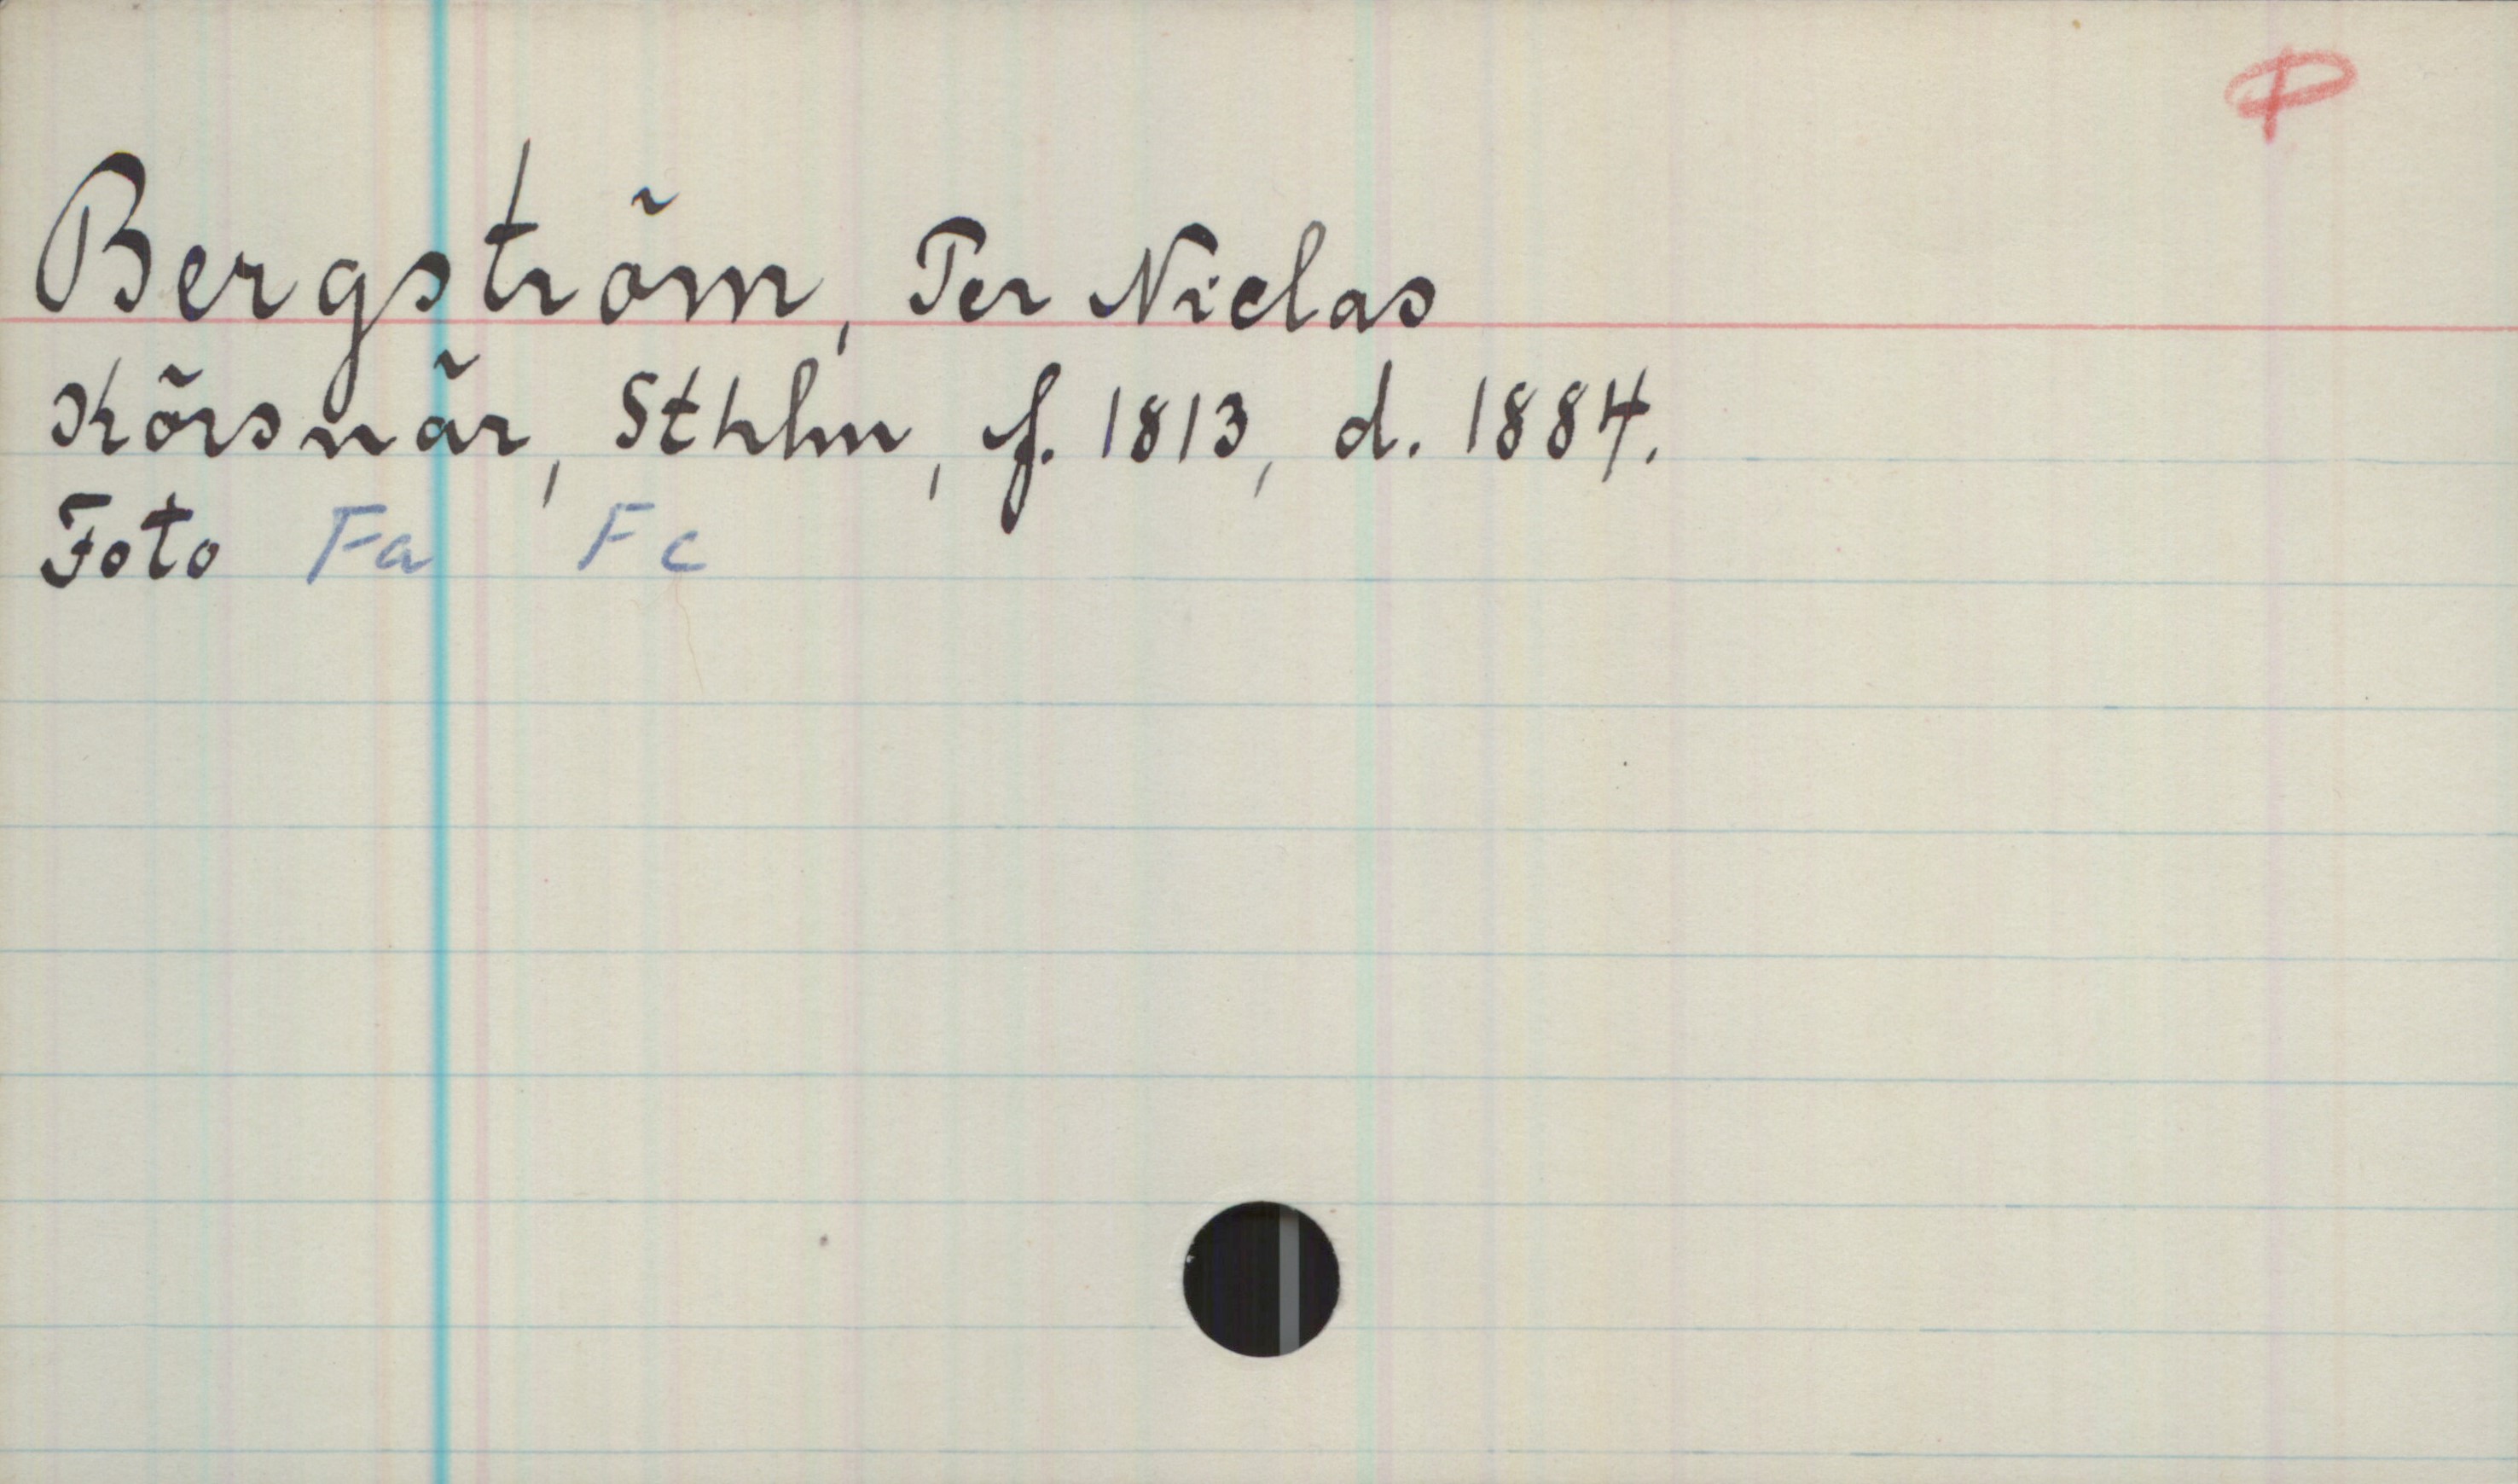 P
Bergström, Per Niclas
Körsnär, Sthlm, f. 1813, d. 1884.
Foto Fa Fc